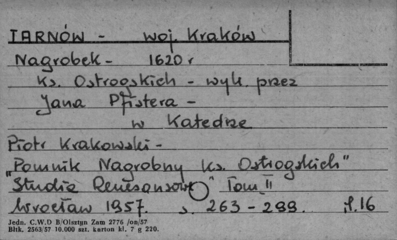 TARNÓW - woj. Kraków
Nagrobek - 1620 r
Ks. Ostrogskich - wyk. przez
Jana Pfistera -
w Katedrze
Piotr Krakowski -
"Pomnik Nagrobny Ks. Ostrogskich"
"Studia Renesansowe" Tom II
Wrocław 1957. s. 263 - 299. f. 16
Jedn. C.W.D B/Olsztyn Zam 2776 /on/57
Bltk. 2563/57 10.000 szt. karton kl. 7 g 220.